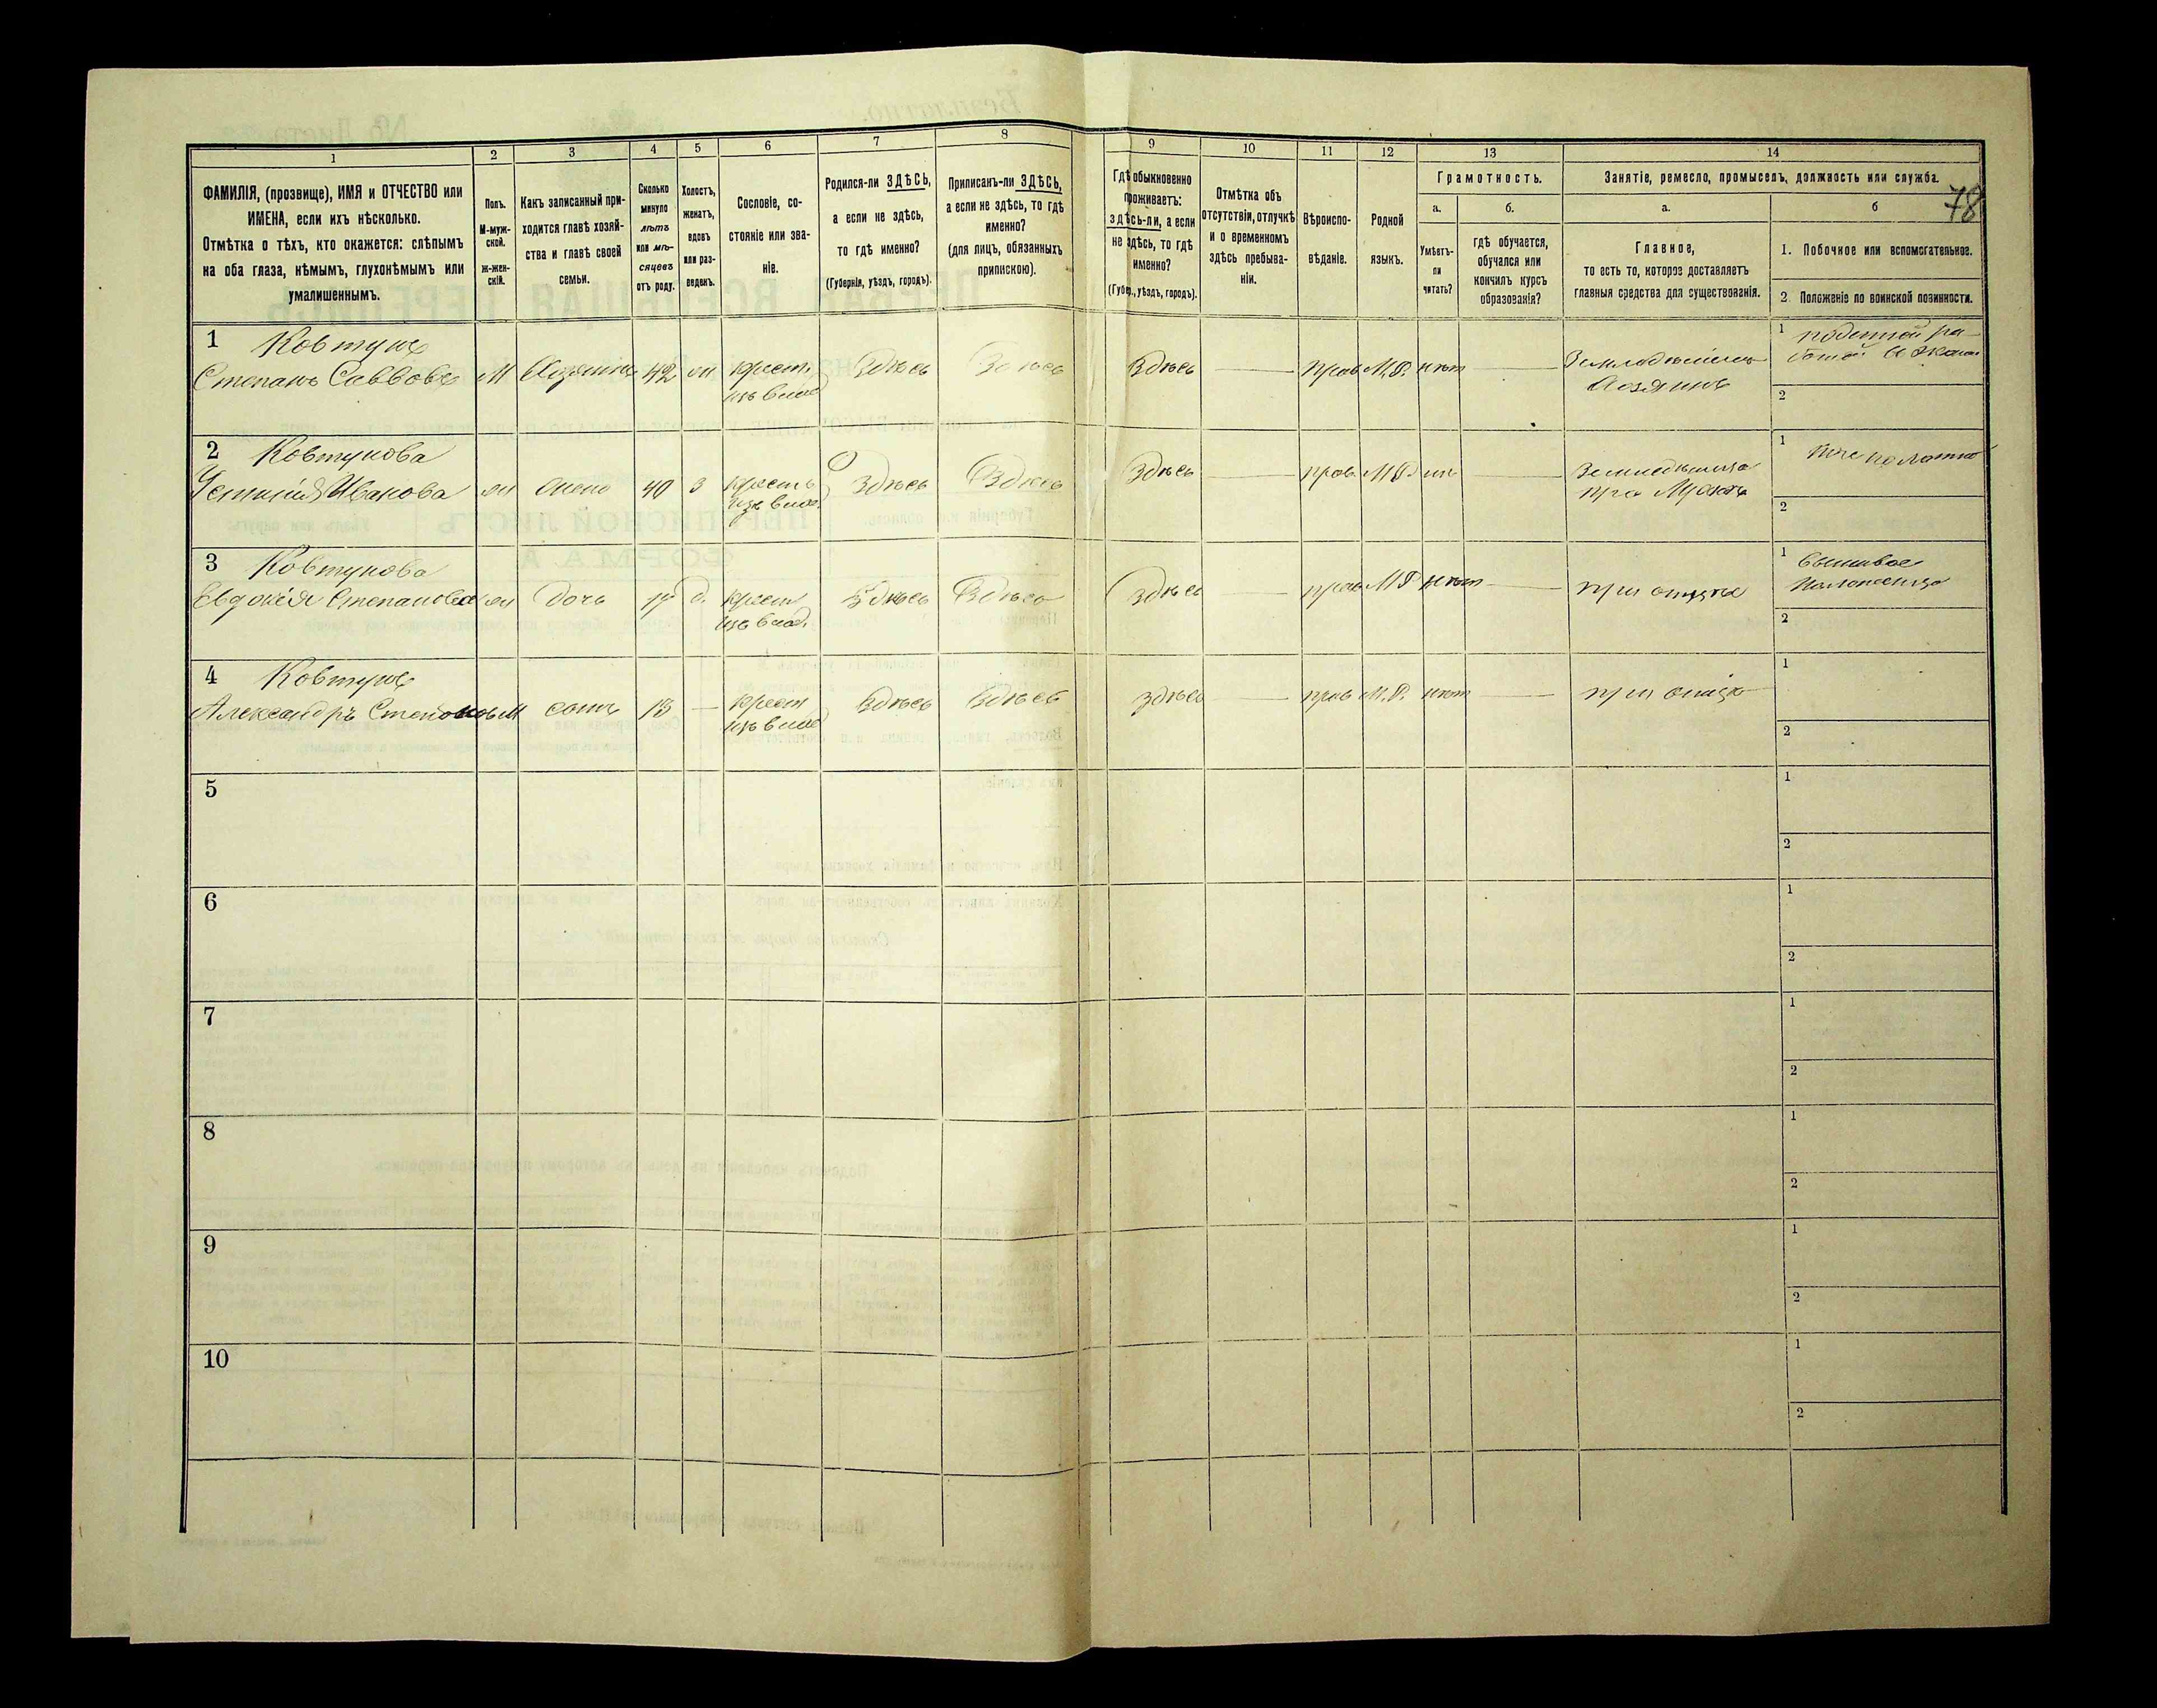 1 2 3 4 5 6 7 8 9 10 11 12 13 14
ФАМИЛІЯ, (прозвище), ИМЯ и ОТЧЕСТВО или
ИМЕНА, если ихъ нѣсколько.
Отмѣтка о тѣхъ, кто окажется: слѣпымъ
на оба глаза, нѣмымъ, глухонѣмымъ или
умалишеннымъ.
Полъ.
М-муж-
ской.
ж-жен-
скій.
Какъ записанный при-
ходится главѣ хозяй-
ства и главѣ своей
семьи.
Сколько
минуло
лѣтъ
или мѣ-
сяцевъ
отъ роду.
Холостъ,
женатъ,
вдовъ
или раз-
веденъ.
Сословіе, со-
стояніе или зва-
ніе.
Родился-ли ЗДѢСЬ,
а если не здѣсь,
то гдѣ именно?
(Губернія, уѣздъ, городъ).
Приписанъ-ли ЗДѢСЬ,
а если не здѣсь, то гдѣ
именно?
(для лицъ, обязанныхъ
припискою).
Гдѣ обыкновенно
проживаетъ:
здѣсь-ли, а если
не здѣсь, то гдѣ
именно?
(Губ., уѣздъ, городъ).
Отмѣтка объ
отсутствіи, отлучкѣ
и о временномъ
здѣсь пребыва-
ніи.
Вѣроиспо-
вѣданіе.
Родной
языкъ.
Грамотность.
а.
Умѣетъ-
ли
читать?
б.
гдѣ обучается,
обучался или
кончилъ курсъ
образованія?
Занятіе, ремесло, промыселъ, должность или служба.
78
а.
Главное,
то есть то, которое доставляетъ
главныя средства для существованія.
б
1. Побочное или вспомогательное.
2. Положеніе по воинской повинности.
1 Ковтунъ
Степанъ Саввовъ М Хозяинъ 42 ж крест. Здѣсь Здѣсь Здѣсь — прав М.Р. нѣт — Земледѣлецъ 1 поденной ра-
изъ влад Хозяинъ
2
2 Ковтунова
Устинія Иванова ж жена 40 З крестъ Здѣсь Здѣсь Здѣсь — прав М Р — 1
изъ влад. при Мужѣ
2
3 Ковтунова
Евдокія Степанова ж дочь д. крест Здѣсь Здѣсь Здѣсь — прав М Р нѣт — при отцѣ 1
изъ влад.
2
4 Ковтунъ
Александръ М сынъ 13 — крест Здѣсь Здѣсь здѣсь — прав М.Р. нѣт — при отцѣ 1
изъ влад
2
5 1
2
6 1
2
7 1
2
8 1
2
9 1
2
10 1
2